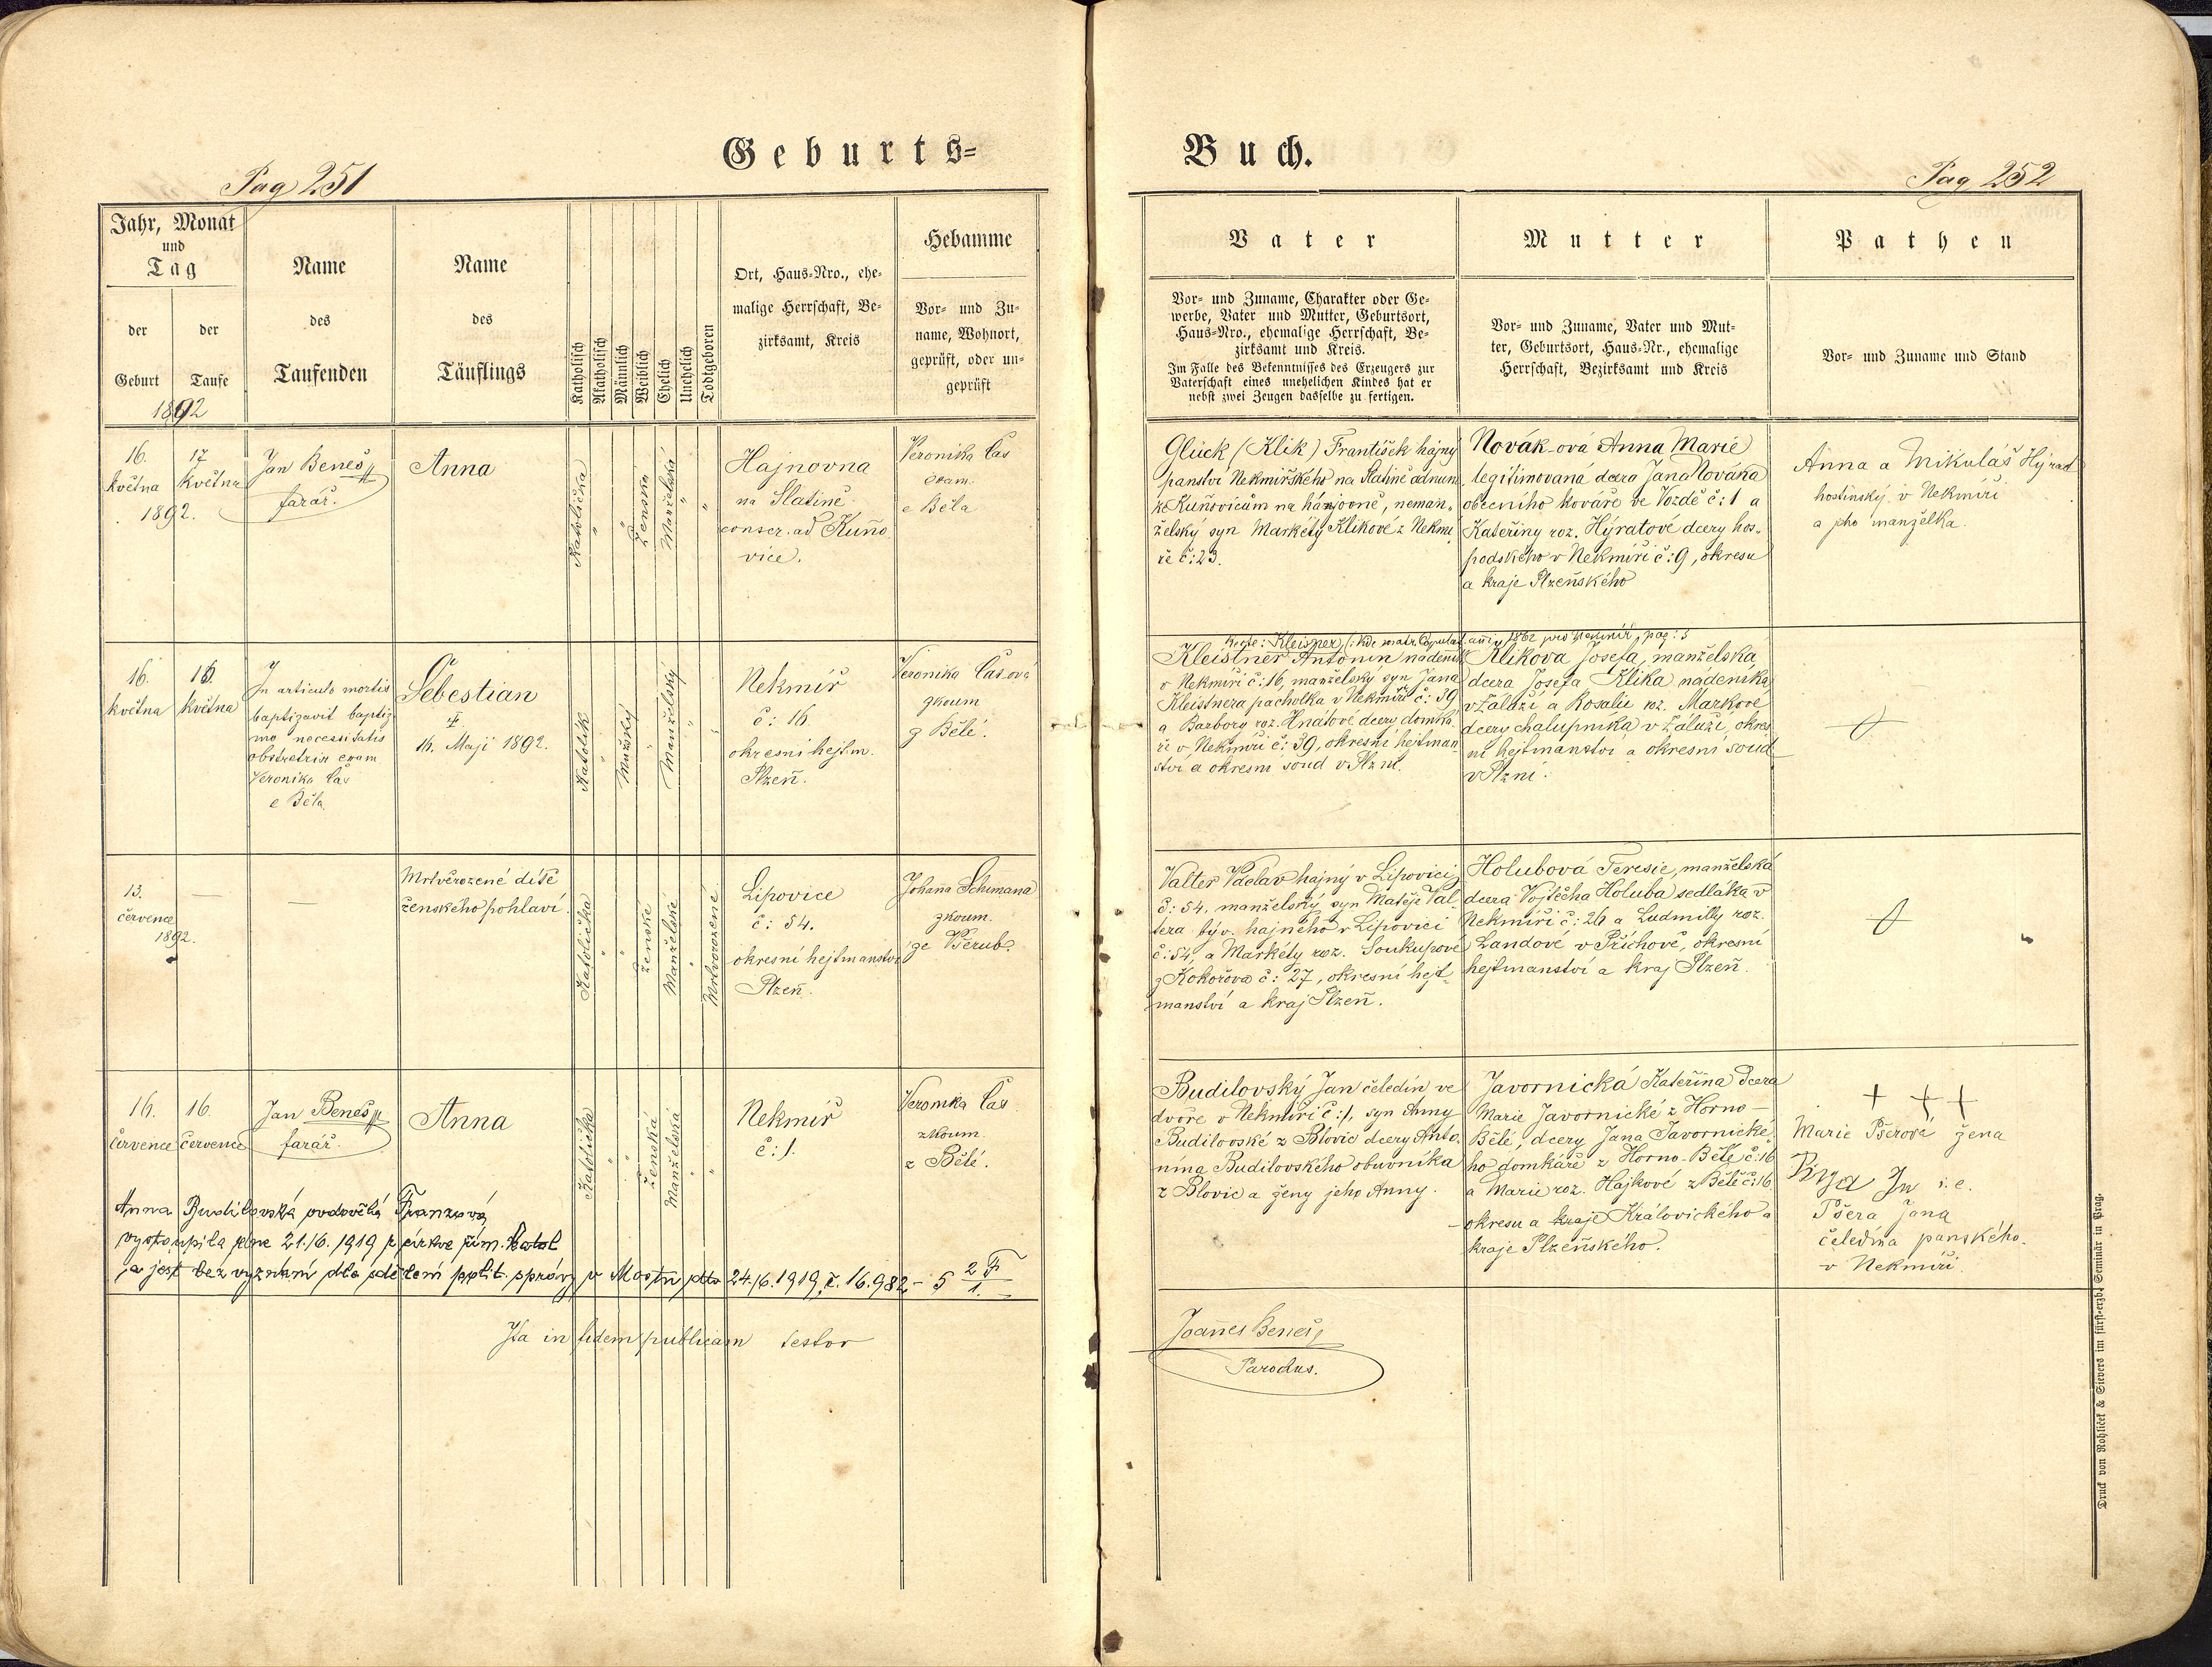 Geburts=
Pag 251
Jahr, Monat
und
Tag
der
Geburt
der
Taufe
1892
Name
des
Taufenden
Name
des
Täuflings
Katholisch
Akatholisch
Männlich
Weiblich
Ehelich
Unehelich
Todtgeboren
Ort, Haus=Nro., ehe=
malige Herrschaft, Be=
zirksamt, Kreis
Hebamme
Vor= und Zu=
name, Wohnort,
geprüft, oder un=
geprüft
16.
května
1892.
17
května
Jan Beneš
farář.
Anna
Katolička
Ženská
Manželská
Hajnovna
na Slatině
conscr. ad Kuňo
vice.
Veronika Čas
exam.
e Běla
16.
května
16.
května
In articulo mortis
baptizavit baptiz
mo necessitatis
obstetrix exam
Veronika Čas
e Běla
Šebestian
‡
16. Maji 1892.
Katolík
Mužský
Manželský
Nekmíř
č: 16.
okresní hejtm.
Plzeň.
Veronika Časová
zkoum
z Bělé.
13.
července
1892.
—
—
Mrtvěrozené dítě
ženského pohlaví.
Katolička
Ženské
Manželské
Mrtvorozené
Lipovice
č: 54.
okresní hejtmanství
Plzeň.
Johana Schimana
zkoum.
ze Všerub.
16.
července
16.
července
Jan Beneš
farář.
Anna
Katolička
Ženská
Manželská
Nekmíř
č: 1.
Veronika Čas
zkoum
z Bělé.
Anna Budilovská provdaná Franzová
vystoupila dne 21./6. 1919 z církve řím. katol
a jest bez vyznání dle sdělení polit. správy v Mostu dto 24./6. 1919, č. 16.982 – 5 2F/1.
Ita in fidem publicam testor
Buch.
Pag 252
Vater
Vor= und Zuname, Charakter oder Ge=
werbe, Vater und Mutter, Geburtsort,
Haus=Nro., ehemalige Herrschaft, Be=
zirksamt und Kreis.
Im Falle des Bekenntnisses des Erzeugers zur
Vaterschaft eines unehelichen Kindes hat er
nebst zwei Zeugen dasselbe zu fertigen.
Mutter
Vor= und Zuname, Vater und Mut=
ter, Geburtsort, Haus=Nr., ehemalige
Herrschaft, Bezirksamt und Kreis
Pathen
Vor= und Zuname und Stand
Glück (Klik) František hajný
panství Nekmiřského na Slatině adnum.
ke Kuňovicům na hájovně, neman=
želský syn Markéty Klikové z Nekmí
ře č: 23.
Novák-ová Anna Marie
legitimovaná dcera Jana Nováka
obecního kováře ve Vozdě č: 1 a
Kateřiny roz. Hýratové dcery hos=
podského v Nekmíři č: 9, okresu
a kraje Plzeňského
Anna a Mikuláš Hýrat
hostinský v Nekmíři
a jeho manželka.
recte: Kleisner, (: vide matr. Copulat. anni 1862 pro Nekmíř, pag: 5
Kleistner Antonín nádeník
v Nekmíři č: 16, manželský syn Jana
Kleistnera pacholka v Nekmíři č: 39
a Barbory roz. Hnátové dcery domká
ře v Nekmíři č: 39, okresní hejtman=
ství a okresní soud v Plzni.
Kliková Josefa, manželská
dcera Josefa Klika nádeníka
v Záluží a Rosalie roz. Markové
dcery chalupníka v Záluží, okres
ní hejtmanství a okresní soud
v Plzni.
Valter Václav hajný v Lipovici
č: 54, manželský syn Matěje Val=
tera býv. hajného v Lipovici
č: 54, a Markéty roz. Soukupové
z Kokořova č: 27, okresní hejt=
manství a kraj Plzeň.
Holubová Teresie, manželská
dcera Vojtěcha Holuba sedláka v
Nekmíři č: 26 a Ludmilly roz.
Landové v Příchově, okresní
hejtmanství a kraj Plzeň.
Budilovský Jan čeledín ve
dvoře v Nekmíři č: 1, syn Anny
Budilovské z Blovic dcery Anto=
nína Budilovského obuvníka
z Blovic a ženy jeho Anny.
Javornická Kateřina dcera
Marie Javornické z Horno—
Bělé, dcery Jana Javornické
ho domkáře z Horno-Bělé č: 16
a Marie roz. Hajkové z Bělé č: 16
okresu a kraje Královického a
kraje Plzeňského.
+ ++
Marie Pšerová žena
i.e.
Pšera Jana
čeledína panského.
v Nekmíři.
Joannes Beneš,
Parochus.
Druck von Rohlíček & Sievers im fürst=erzb. Seminär in Prag.